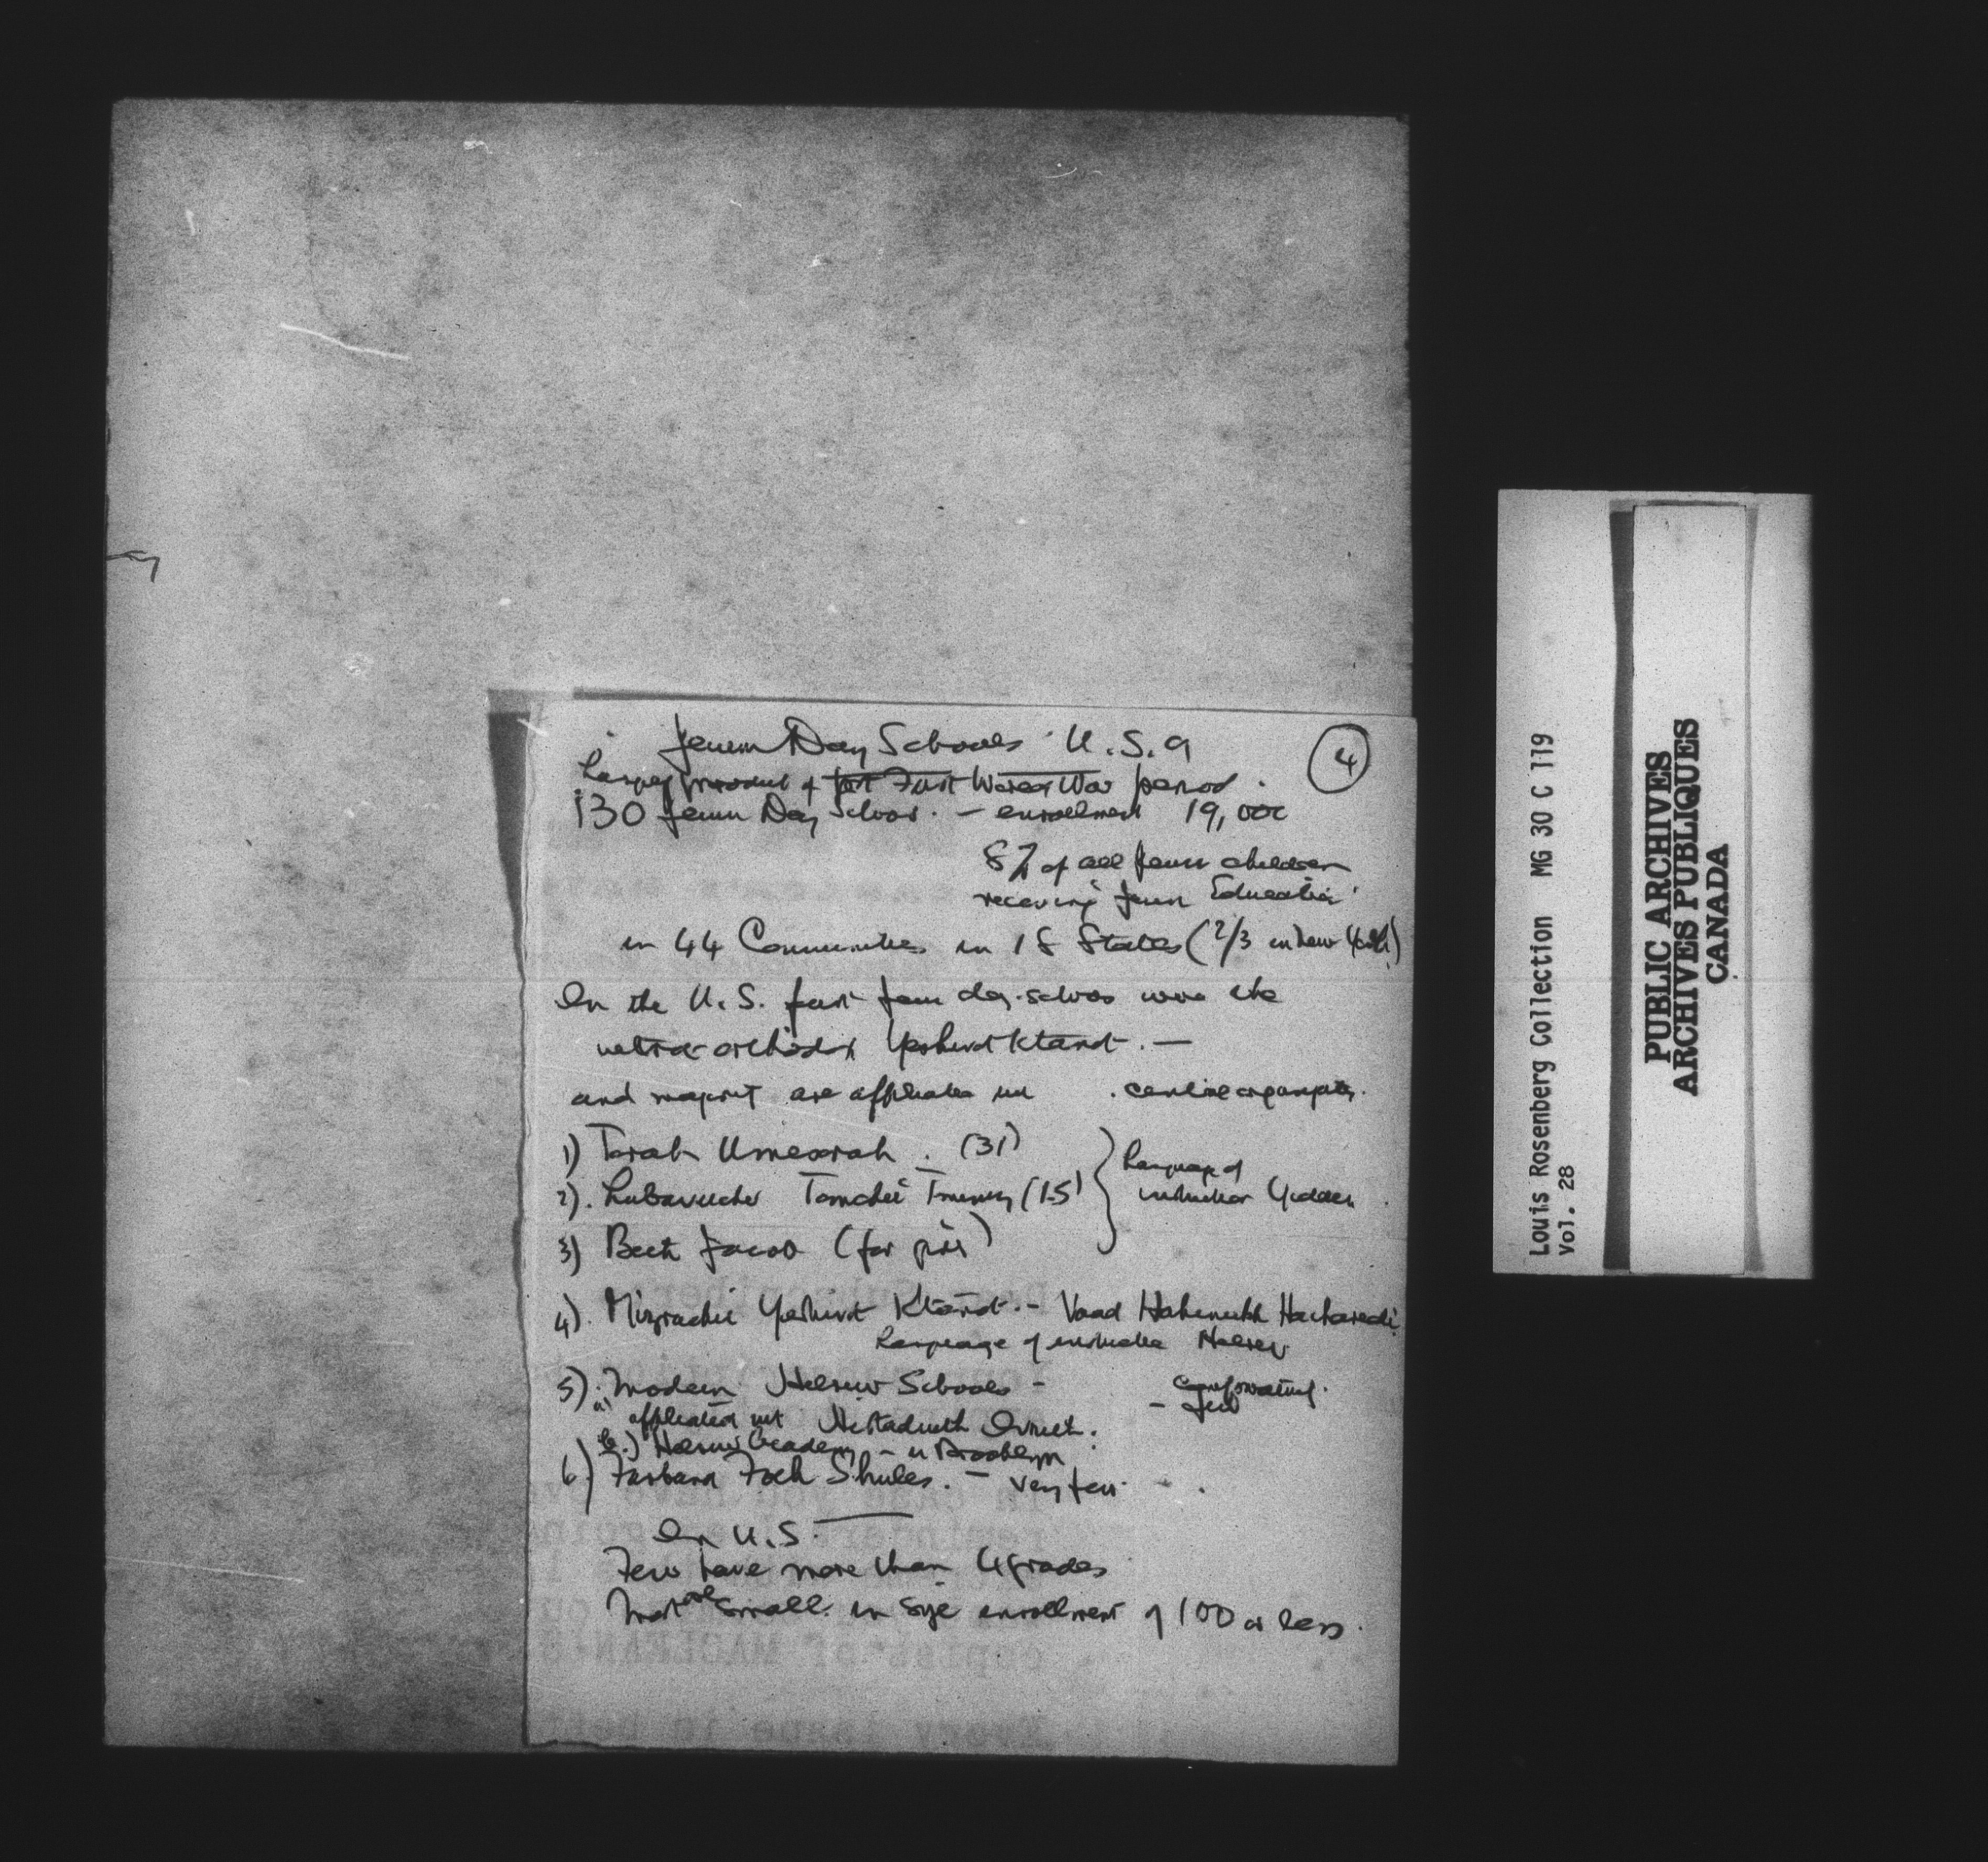 Jewish Day Schools U.S.A
4
Largely product of post First World War period.
130 Jewish Day Schools. - enrollment 19,000
8% of all Jewish children
receiving Jewish Education
in 44 Communities in 18 States (2/3 in New York)
In the U.S. first Jewish day-schools were the
ultra-orthodox Yeshivot Ktanot. -
and majority are affiliated with central organization.
1) Torah Umesorah. (31)
2). Lubavitcher Tomchei Tmimim (15)
3) Beth Jacob (for girls)
Language of
instruction Yiddish.
4). Mizrachi Yeshivot Ktanot. - Vaad Hahinukh Hacharedi
Language of instruction Hebrew
5). Modern Hebrew Schools -
- few
a) affiliated with Histadruth Ivrith.
b.) Hebrew Academy - in Brooklyn
6) Farband Folk Shules. - very few
In U.S.
Few have more than 4 grades
Most are small in size enrollment of 100 or less.
Louis Rosenberg Collection MG 30 C 119
Vol. 28
PUBLIC ARCHIVES
ARCHIVES PUBLIQUES
CANADA